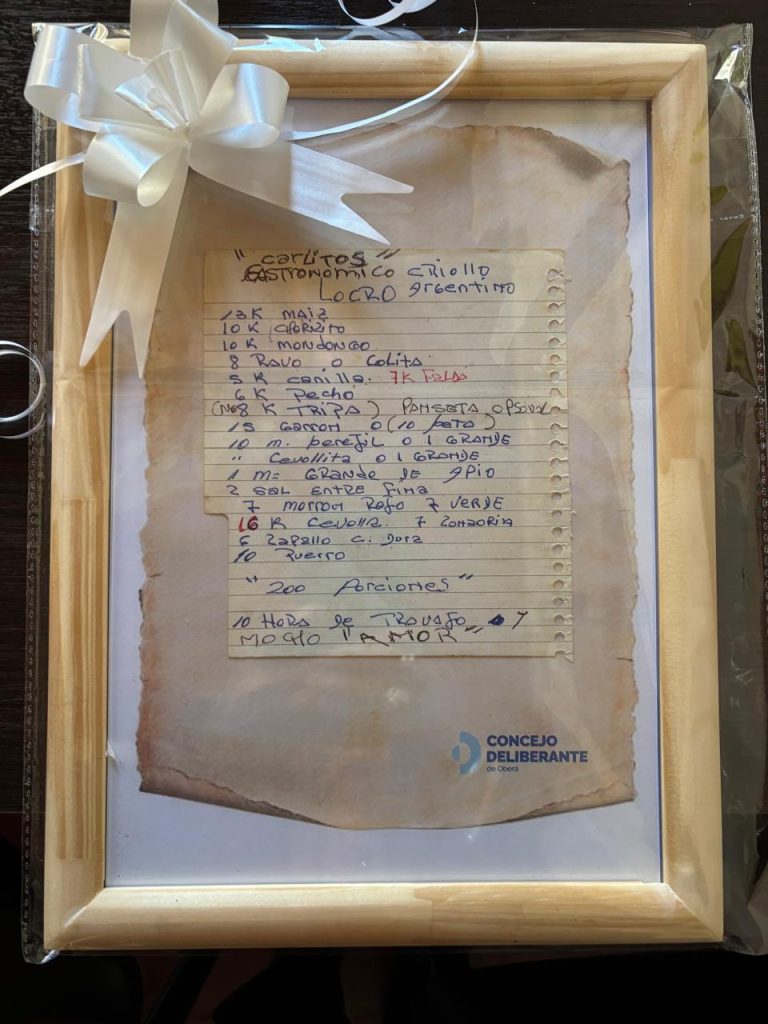 "Carlitos"
Gastronomico criollo
Locro Argentino
13 K maiz
10 K chorizito
10 K mondongo
8 Ravo o Colita
5 K canilla. 7K Falda
6 K Pecho
(No8 K TRIPA) Panseta
15 Garron o (10 pata)
10 m. perefil o 1 GRANDE
" Cevollita o 1 GRANDE
1 m= GRANDE DE APIO
2 sal entre fina
7 morron Rojo 7 verde
16 K cevolla. 7 zanaoria
6 zapallo c. Dura
10 Puerro
"200 Porciones"
10 Hora de Travajo y
MOCHO "AMOR"
CONCEJO
DELIBERANTE
de Oberá